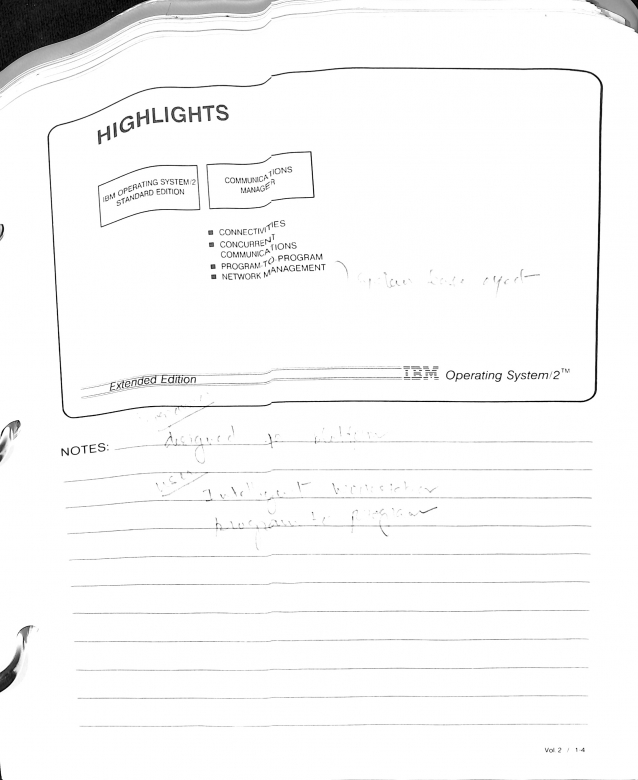 HIGHLIGHTS
IBM OPERATING SYSTEM/2
STANDARD EDITION
COMMUNICATIONS
MANAGER
■ CONNECTIVITIES
■ CONCURRENT
COMMUNICATIONS
■ PROGRAM-TO-PROGRAM
■ NETWORK MANAGEMENT
Extended Edition
IBM Operating System/2™
NOTES:
designed
Intelligent
program to program
Vol 2 / 1-4